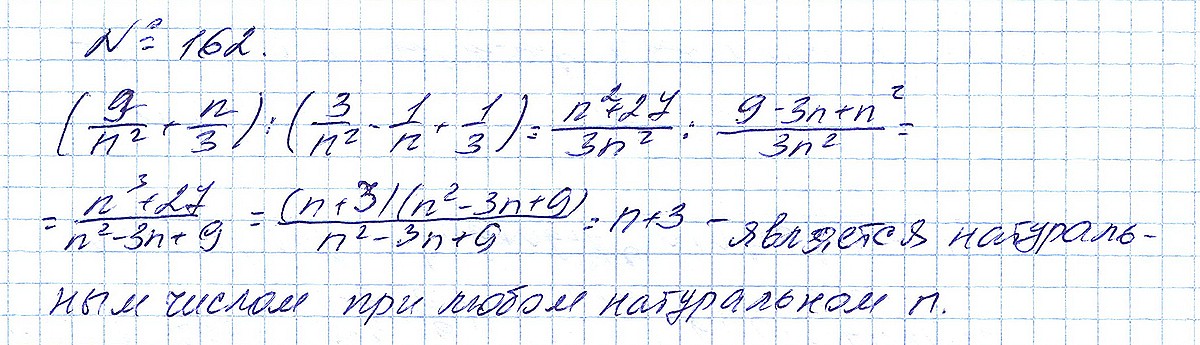 № 162.
(9/n² + n/3) : (3/n² - 1/n + 1/3) = n²+27/3n² : 9-3n+n²/3n² =
= n³+27/n²-3n+9 = (n+3)(n²-3n+9)/n²-3n+9 = n+3 - является натураль-
ным числом при любом натуральном n.